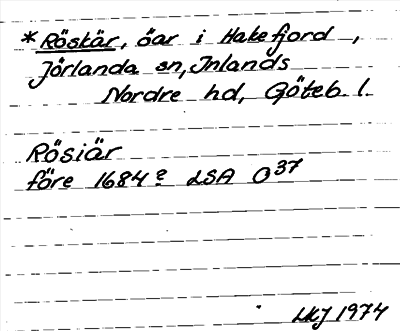 *Röskär, öar i Hakefjord,
Jörlanda sn, Inlands
Nordre hd, Göteb. l.
Rösiär
före 1684? LSA O37
LKJ 1974